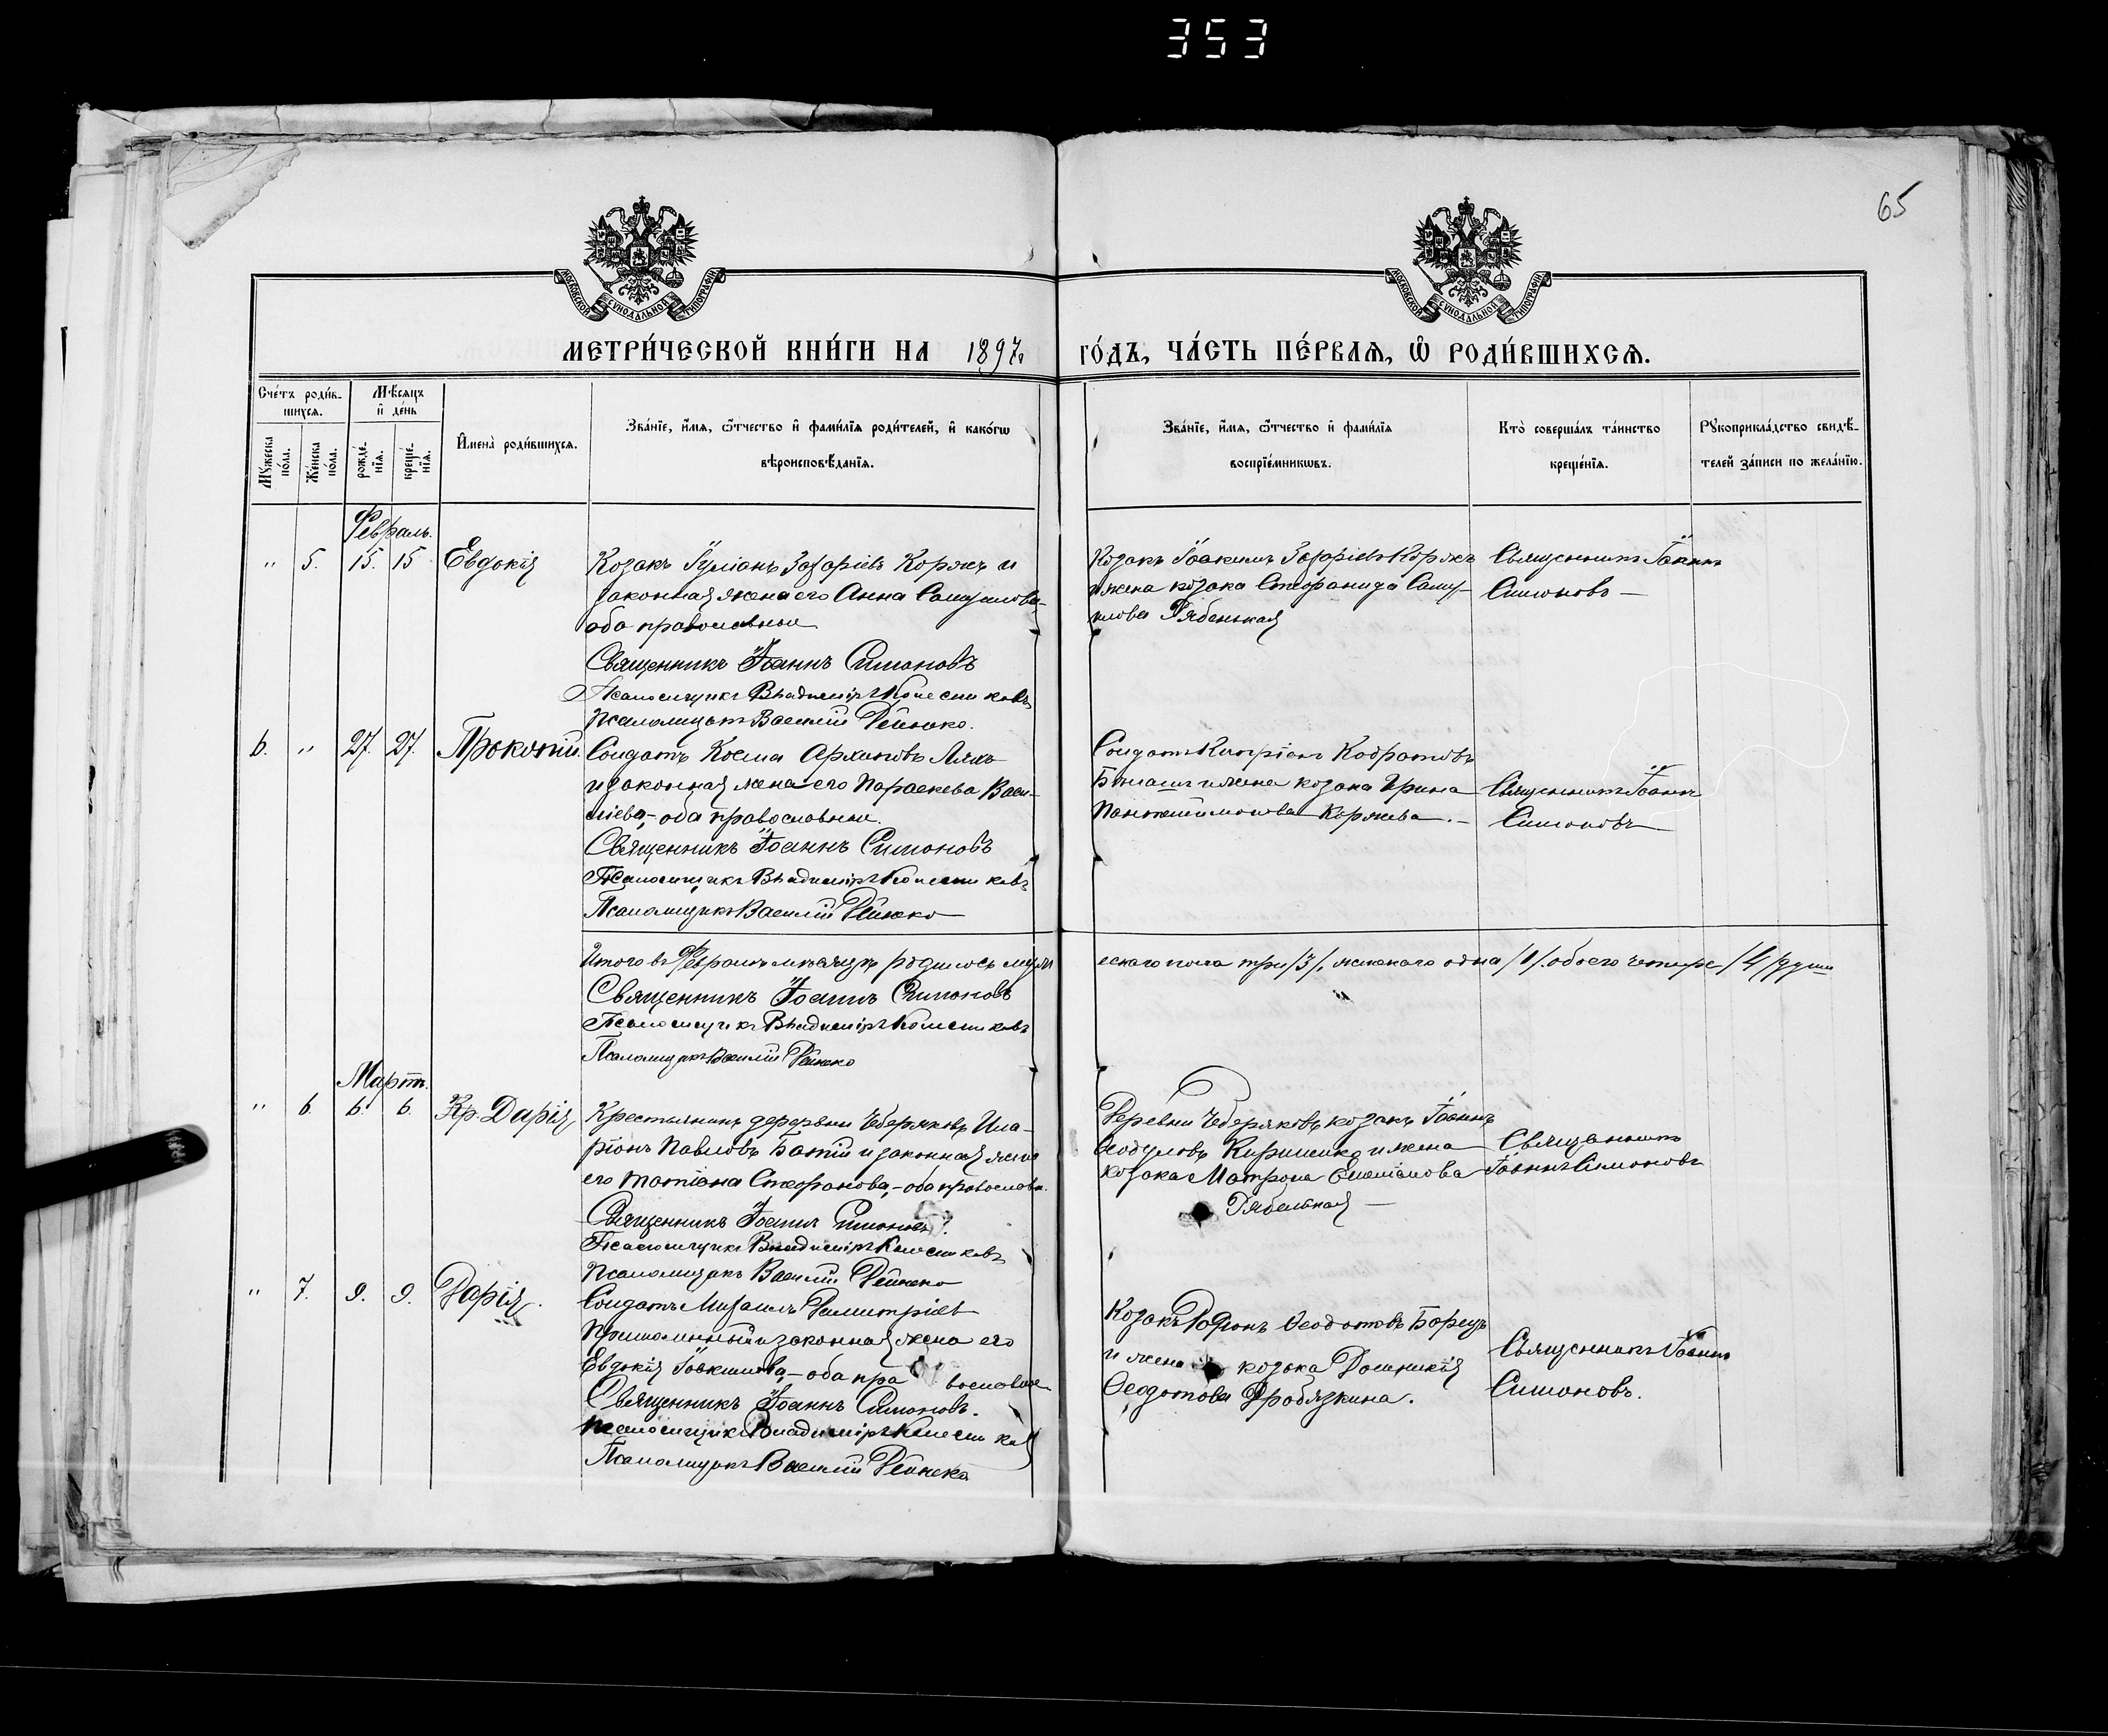 353
65
МОСКОВСКОЙ СѴНОДАЛЬНОЙ ТИПОГРАФІИ
МОСКОВСКОЙ СѴНОДАЛЬНОЙ ТИПОГРАФІИ
МЕТРИ́ЧЕСКОЙ КНИ́ГИ НА 1897 го́дъ, ча́сть пе́рвая, ѡ҆ роди́вшихся.
Сче́тъ роди́в-
шихся.
Мꙋжеска по́ла.
Же́нска по́ла.
Мѣ́сяцъ
и҆ де́нь
рожде́-
нїя.
креще́-
нїя.
И҆мена̀ роди́вшихся.
Зва́нїе, и҆́мя, ѻ҆́тчество и҆ фами́лїя роди́телей, и҆ како́гѡ
вѣроисповѣ́данїя.
Зва́нїе, и҆́мя, ѻ҆́тчество и҆ фами́лїя
воспрїе́мникѡвъ.
Кто̀ соверша́лъ та́инство
креще́нїя.
Рꙋкоприкла́дство свидѣ́-
телей за́писи по жела́нїю.
Февраль.
" 5. 15. 15 Евдокія
Козакъ Іуліанъ Захаріевъ Коржъ и
законная жена его Анна Самуилова,
оба православные
Священникъ Іоаннъ Симоновъ
Псаломщикъ Владиміръ Колесниковъ
Псаломщикъ Василій Рейнеко.
Козакъ Іоакимъ Захаріевъ Коржъ
и жена козака Стефанида Саму-
илова Рябенькая
Священникъ Іоаннъ
Симоновъ
6. " 27. 27. Прокопій
Солдатъ Косма Архиповъ Лякъ
и законная жена его Параскева Васи-
лiева, - оба православные.
Священникъ Іоаннъ Симоновъ
Псаломщикъ Владиміръ Колесниковъ
Псаломщикъ Василій Рейнеко
Солдатъ Кипріанъ Кодратовъ
и жена козака Ирина
Пантелеимонова Коржева. -
Священникъ Іоаннъ
Симоновъ
Итого въ Февралѣ мѣсяцѣ родилось муж
ескаго пола три /3/, женскаго одна /1/. обоего четыре /4/ души
Священникъ Іоаннъ Симоновъ
Псаломщикъ Владиміръ Колесниковъ
Псаломщикъ Василій Рейнеко
Мартъ.
" 6. 6. 6. Кр. Дарія
Крестьянинъ деревни Чеберяковъ Ила-
ріонъ Павловъ Батій и законная жена
его Татіана Стефанова, - оба православн.
Священникъ Іоаннъ Симоновъ
Псаломщикъ Владиміръ Колесниковъ
Псаломщикъ Василій Рейнеко
Деревни Чеберяковъ козакъ Іоаннъ
Ѳеодуловъ Кириченко и жена
козака Матрона
Рябенькая
Священникъ
Іоаннъ Симоновъ
" 7. 9. 9. Дарія.
Солдатъ Михаилъ Димитріевъ
и законная жена его
Евдокія Іоакимова, - оба православные
Священникъ Іоаннъ Симоновъ.
Псаломщикъ Владиміръ Колесниковъ
Псаломщикъ Василій Рейнеко
Козакъ Родіонъ Ѳеодотовъ Борецъ
и жена козака Домникія
Ѳеодотова Дробязкина.
Священникъ Іоаннъ
Симоновъ.